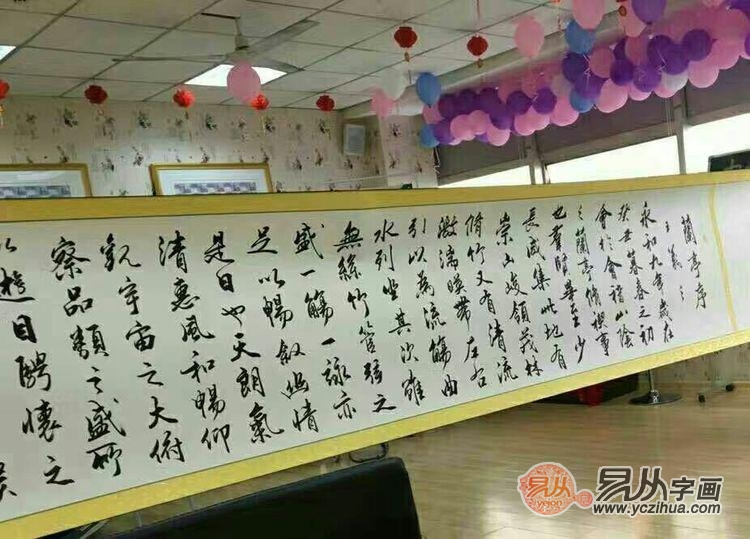 蘭亭序
王羲之
永和九年歲在
癸丑暮春之初
會於會稽山陰
之蘭亭脩禊事
也羣賢畢至少
長咸集此地有
崇山峻領茂林
脩竹又有清流
激湍暎帶左右
引以為流觴曲
水列坐其次雖
無絲竹管弦之
盛一觴一詠亦
足以暢敘幽情
是日也天朗氣
清惠風和暢仰
觀宇宙之大俯
察品類之盛所
以遊目騁懷足
易从
易从字画
www.yczihua.com